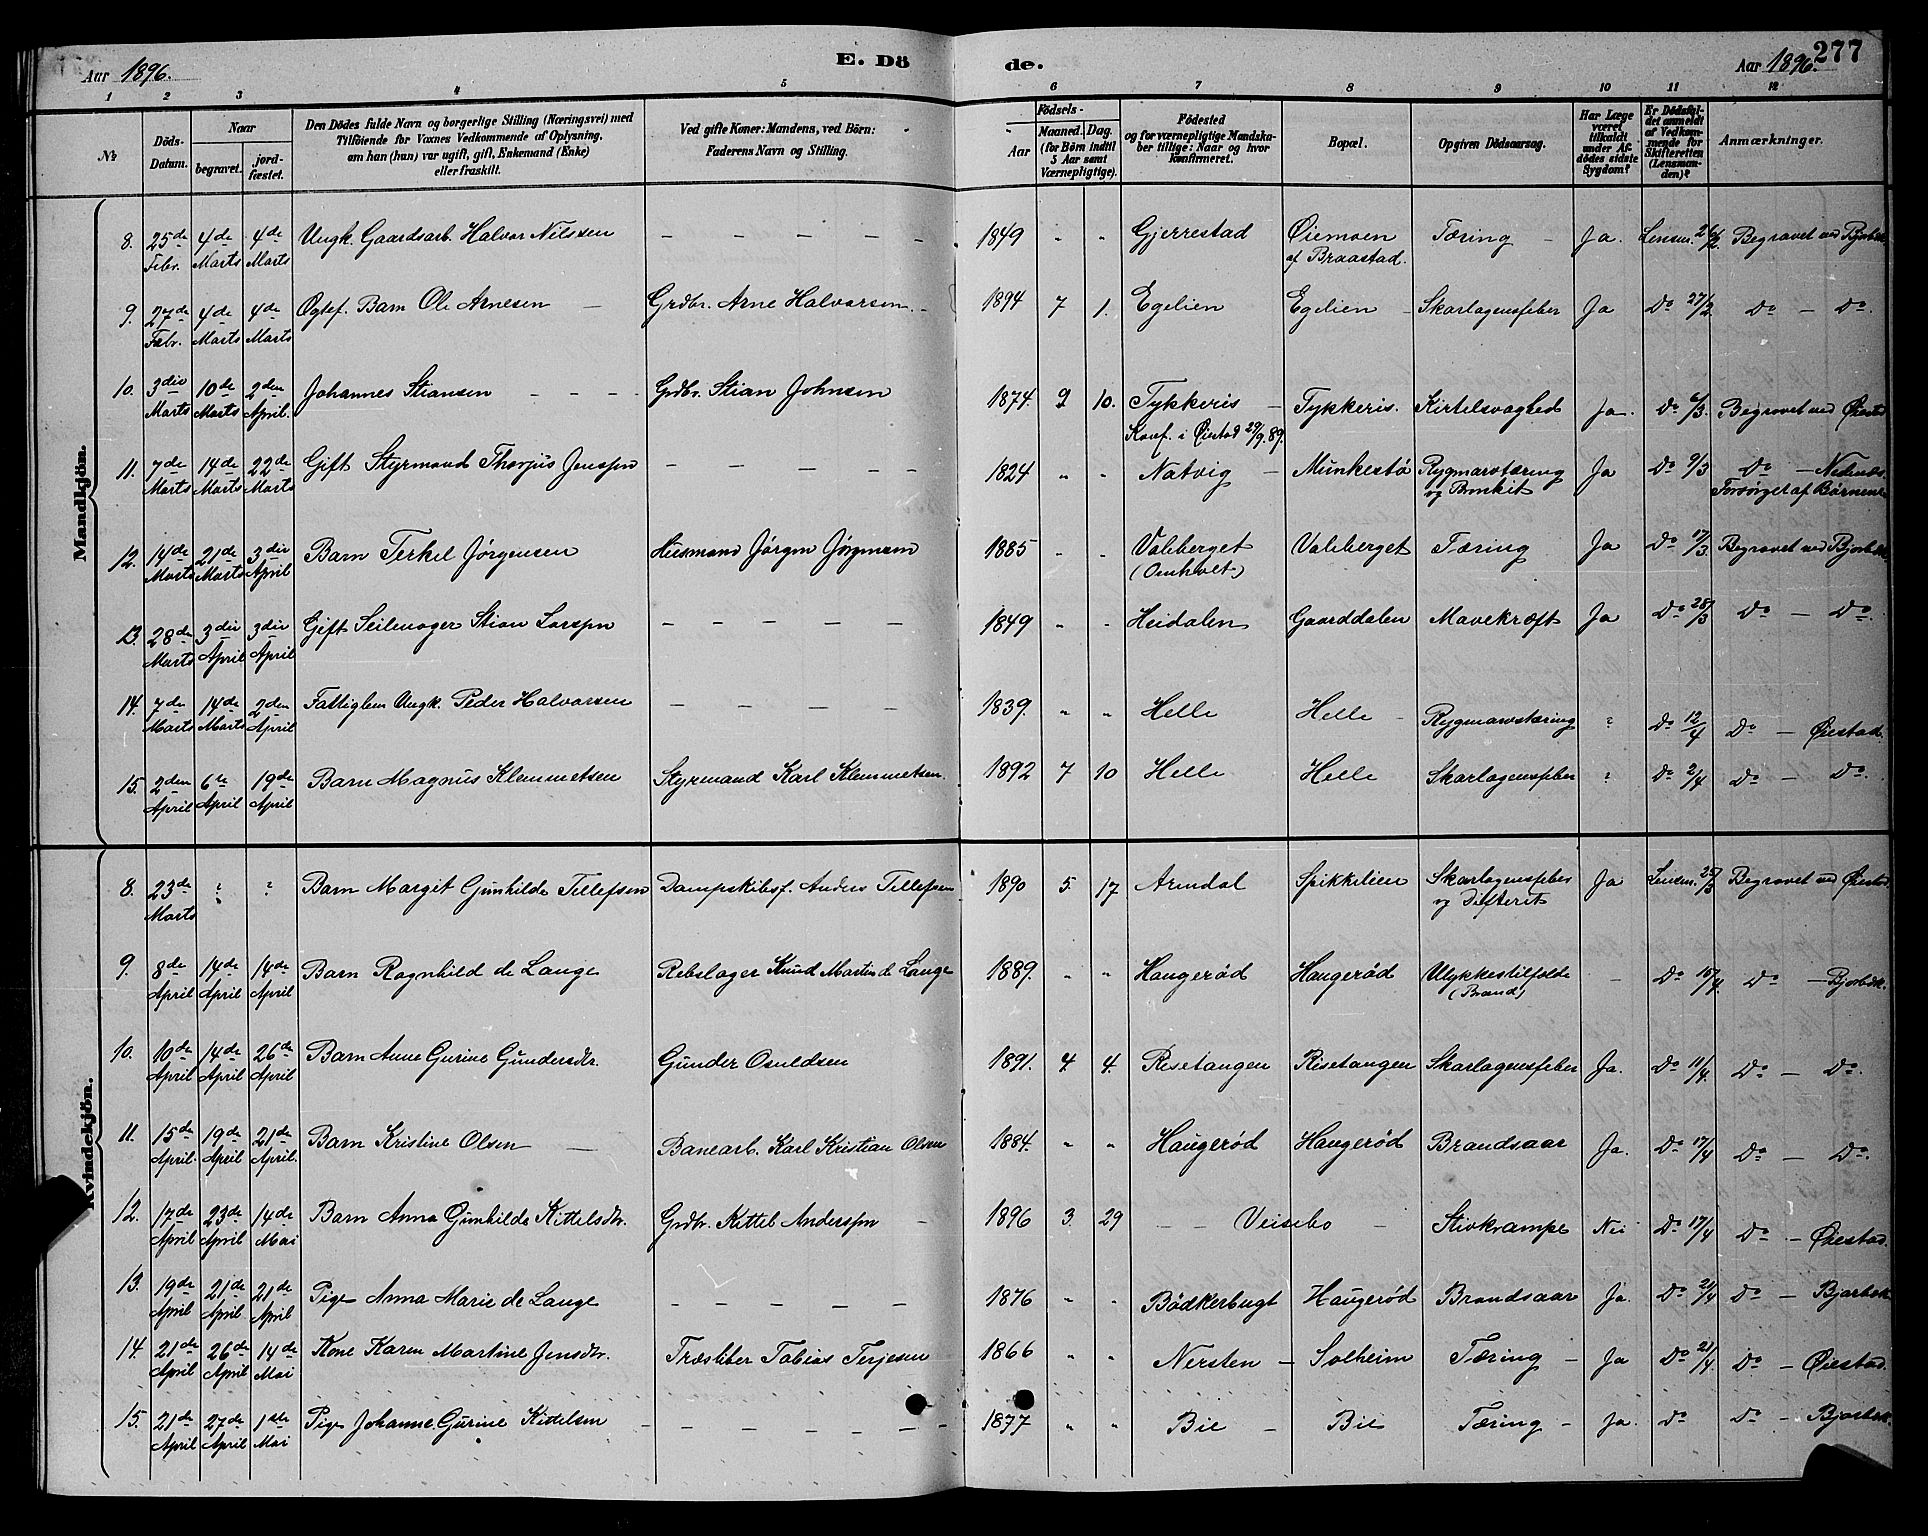 Aar 1896. E. Dö de. Aar 1896. 277
1 2 3 4 5 6 7 8 9 10 11 12
№ Döds-Datum. Naar begravet. jord-fæstet. Den Dödes fulde Navn og borgerlige Stilling (Næringsvei) med Tilföiende for Voxnes Vedkommende af Oplysning, om han (hun) var ugift, gift, Enkemand (Enke) eller fraskilt. Ved gifte Koner: Mandens, ved Börn: Faderens Navn og Stilling. Födsels-Aar Maaned. Dag. (for Börn indtil 5 Aar samt Værnepligtige). Födested og for værnepligtige Mandska-ber tillige: Naar og hvor konfirmeret. Bopæl. Opgiven Dödsaarsag. Har Læge været tilkaldt under Af-dödes sidste Sygdom? Er Dödsfal-det anmeldt af Vedkom-mende for Skifteretten (Lensman-den)? Anmærkninger.
Mandkjön.
8. 25de Febr. 4de Marts 4de Marts Ungk. Gaardsarb. Halvor Nilssen — — — — — 1849 " " Gjerrestad Øiemoen af Braastad. Tæring — Ja. Lensm. 26/2 Begravet ved Bjorbek
9. 27de Febr. 4de Marts 4de Marts Ogtef. Barn Ole Arnesen — Grdbr. Arne Halvorsen. — 1894 7 1. Egelien Egelien — Skarlagensfeber Ja Do 27/2 Do — Do.
10. 3die Marts 10de Marts 2den April. Johannes Stiansen — — — — Grdbr. Stian Johnsen 1874. 9 10. Tykkeris — Konf. i Øiestad 29/9. 89. Tykkeris. Kirtelsvaghed Ja. Do 6/3. Begravet ved Øiestad
11. 7de Marts 14de Marts 22de Marts Gift Styrmand Thorjus Jenssen — — — — — 1824 " " Natvig — Munkestø Rygmarvtæring og Bronkit Ja Do 9/3 Do — Nedenæs Forsørget af Børnene
12. 14de Marts 21de Marts 3die April Barn Terkel Jørgensen Husmand Jørgen Jørgensen 1885 " " Valeberget (Omholt) Valeberget Tæring Ja Do 17/3. Begravet ved Bjorbek
13. 28de Marts 3die April 3die April Gift Seilmager Stian Larssen — — — — — — 1849 " " Heidalen Gaarddalen Mavekræft Ja Do 28/3 Do — Do.
14. 7de Marts 14de Marts 2den April Fattiglem Ungk. Peder Halvorsen — — — — 1839. " " Helle Helle — Rygmarvstæring ? Do 12/4 Do — Øiestad.
15. 2den April 6te April 19de April Barn Magnus Klemmetsen Styrmand Karl Klemmetsen. 1892 7 10 Helle Helle Skarlagensfeber ? Do 2/4 Do — Do.
Kvindekjön.
8. 23de Marts ? ? Barn Margit Gunhilde Tellefsen Dampskibsf. Anders Tellefsen 1890 5 17 Arendal Spikkilien Skarlagensfeber og Difterit Ja Lensm. 25/3 Begravet ved Øiestad
9. 8de April 14de April 14de April Barn Ragnhild de Lange Rebslager Knud Martin de Lange 1889. " " Haugerød Haugerød Ulykkestilfelde (Brand) — Do 15/4. Do — Bjorbek.
10. 10de April 14de April 26de April Barn Anne Gurine Gundersdtr. Gunder Osuldsen 1891. 4 4. Risetangen Risetangen Skarlagensfeber Ja. Do 11/4. Do — Do.
11. 15de April. 19de April 21de April. Barn Kristine Olsen — Banearb. Karl Kristian Olsen 1884. " " Haugerød Haugerød Brandsaar Ja. Do 17/4 Do — Do.
12. 17de April 23de April 14de Mai Barn Anna Gunhilde Kittelsdtr. Grdbr. Kittel Anderssen — 1896 3. 29 — — Veisebo — Stivkrampe Nei Do 17/4 Do — Øiestad.
13. 19de April 21de April 21de April Pige Anna Marie de Lange — — — — — 1876 " " Bödkerbugt Haugerød Brandsaar Ja. Do 21/4 Do — Bjorbek
14. 21de April 26de April 14de Mai Kone Karen Martine Jensdtr. Træsliber Tobias Terjesen 1866 " " Nersten — Solheim Tæring — Ja Do 21/4. Do — Øiestad.
15. 21de April 27de April 1ste Mai Pige Johanne Gurine Kittelsen — — — — — 1877 " " Bie — Bie Tæring — Ja. Do Do — Bjorbek.